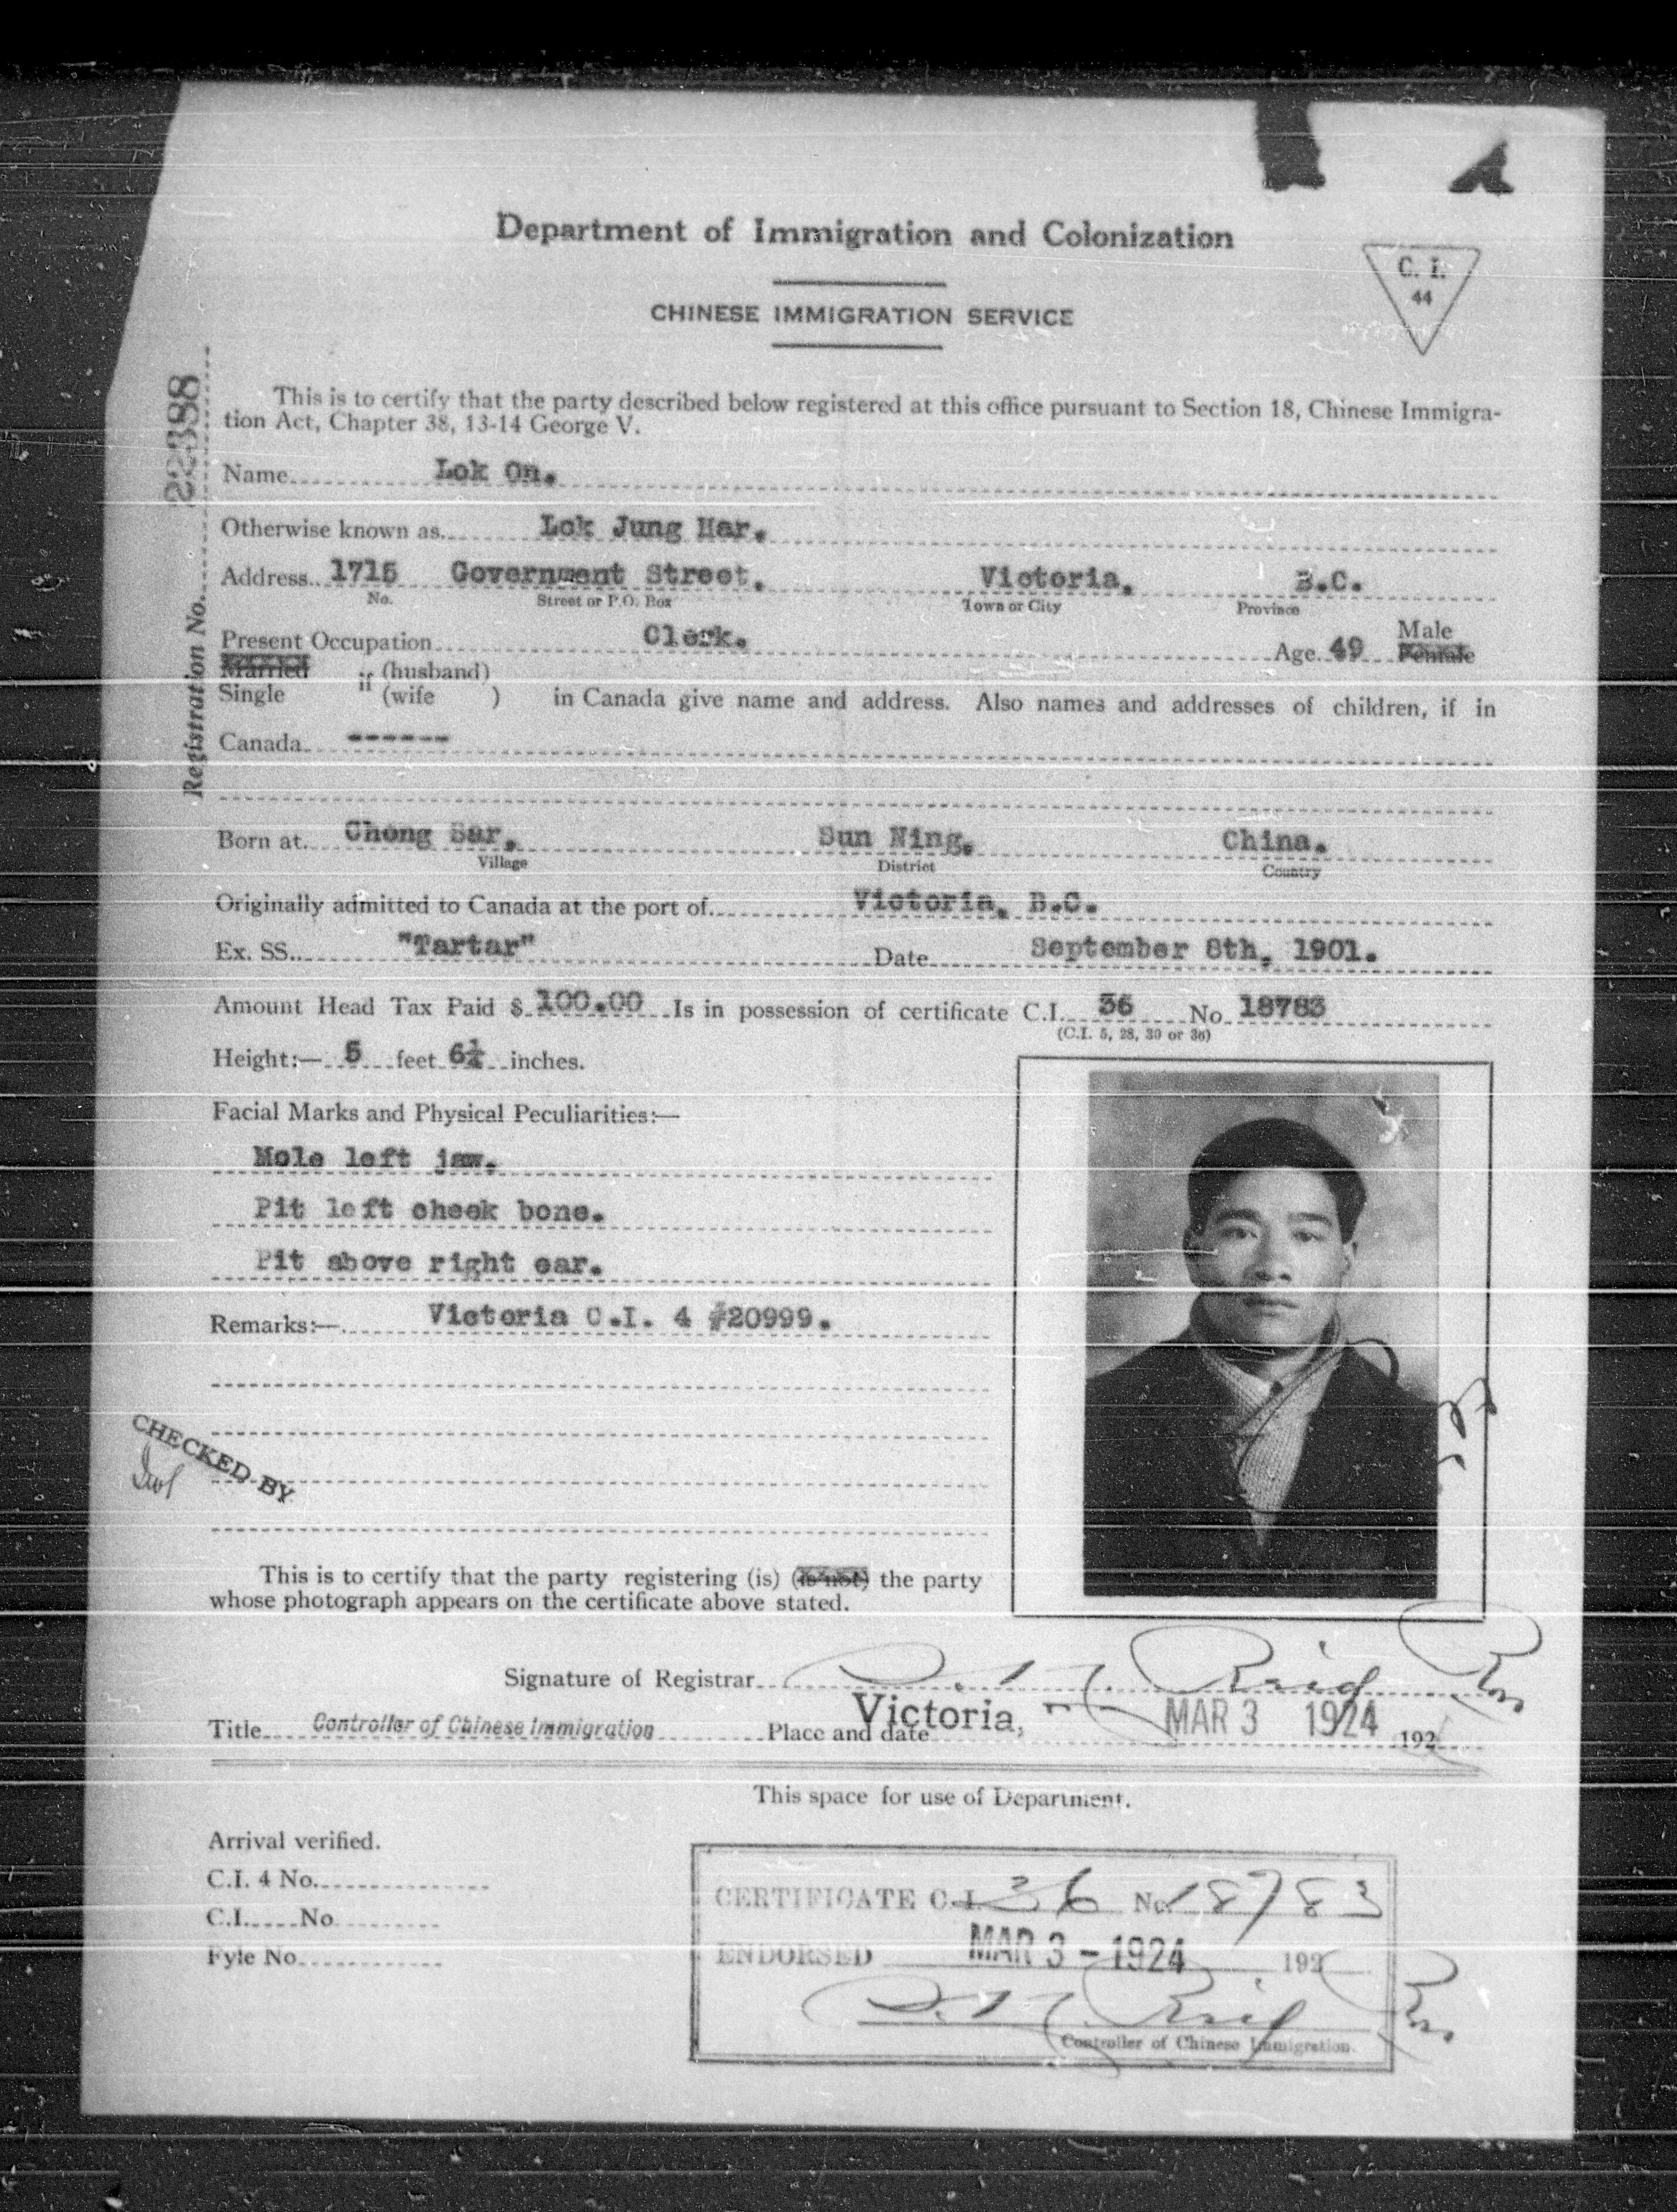 Department of Immigration and Colonization
C. I.
44
CHINESE IMMIGRATION SERVICE
Registration No. 22388
This is to certify that the party described below registered at this office pursuant to Section 18, Chinese Immigra-
tion Act, Chapter 38, 13-14 George V.
Name Lok On.
Otherwise known as Lok Jung Har.
Address 1715 Government Street. Victoria. B.C.
No. Street or P.O. Box Town or City Province
Present Occupation Clerk. Age 49 Male Female
Married
Single if (husband)
(wife ) in Canada give name and address. Also names and addresses of children, if in
Canada ------
Born at Chong Sar. Sun Ning. China.
Village District Country
Originally admitted to Canada at the port of Victoria, B.C.
Ex. SS. "Tartar" Date September 8th, 1901.
Amount Head Tax Paid $ 100.00 Is in possession of certificate C.I. 36 No. 18783
(C.I. 5, 28, 30 or 36)
Height:— 5 feet 6¼ inches.
Facial Marks and Physical Peculiarities:—
Mole left jaw.
Pit left cheek bone.
Pit above right ear.
Remarks:— Victoria C.I. 4 #20999.
CHECKED BY
This is to certify that the party registering (is) (is not) the party
whose photograph appears on the certificate above stated.
Signature of Registrar
Title Controller of Chinese Immigration Place and date Victoria, MAR 3 1924 192
This space for use of Department.
Arrival verified.
C.I. 4 No.
C.I. No
Fyle No.
CERTIFICATE C.I. 36 No. 18783
ENDORSED MAR 3 - 1924 192
Controller of Chinese Immigration.